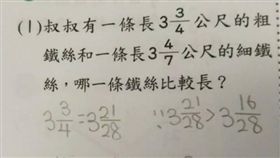 (1)叔叔有一條長3 3/4 公尺的粗
鐵絲和一條長3 4/7 公尺的細鐵
絲，哪一條鐵絲比較長？
3 3/4 = 3 21/28 ∵ 3 21/28 > 3 16/28